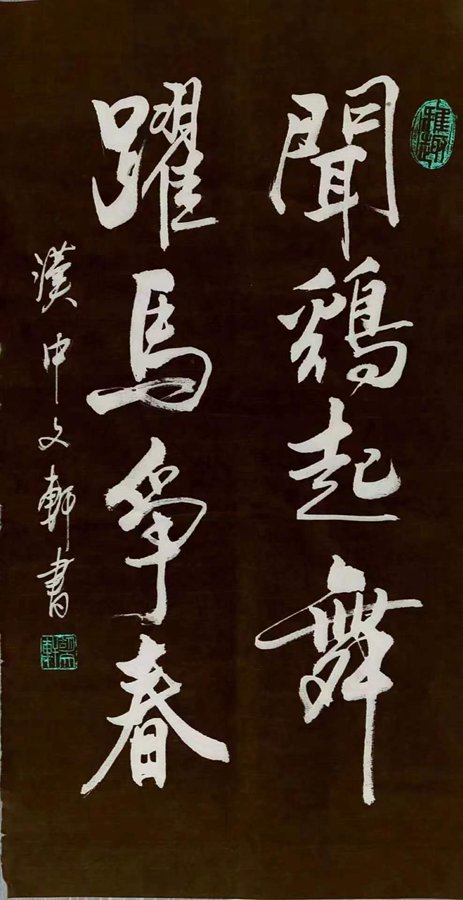 聞鷄起舞
躍馬爭春
漢中文軒書